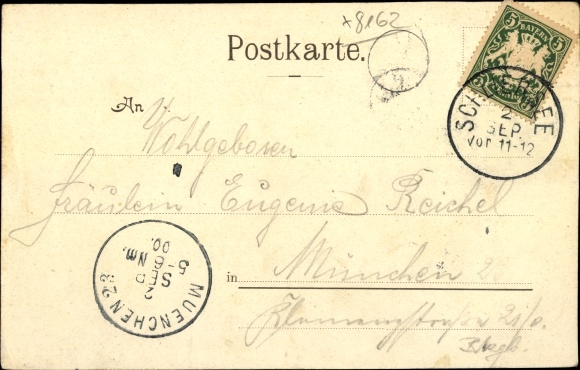 +8162
Postkarte.
5 BAYERN 5
SCHLIERSEE
2
SEP.
Vor 11-12
An
Wohlgeboren
Fräulein Eugenie Reichel
in München 2.
Blumenstraße 21/0.
MUENCHEN 2.B.
2
SEP
5-6 Nm.
00.